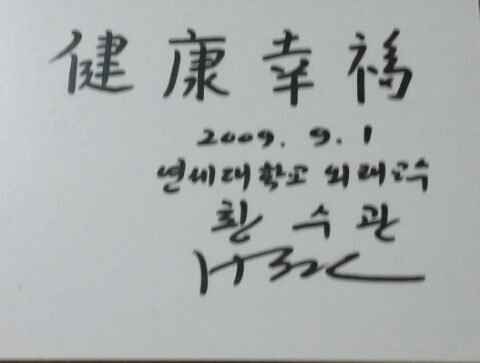 健康幸福
2009. 9. 1
연세대학교 외래교수
황수관